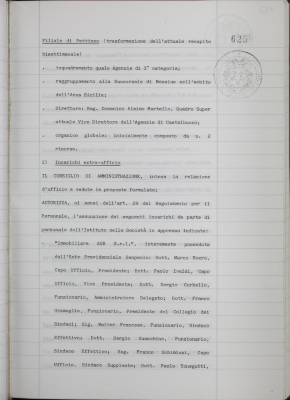 625
Filiale di Pettineo (trasformazione dell'attuale recapito
bisettimanale)
. inquadramento quale Agenzia di 3ª categoria;
. raggruppamento alla Succursale di Messina nell'ambito
dell'Area Sicilia;
. Direttore: Rag. Domenico Alaimo Martello, Quadro Super
attuale Vice Direttore dell'Agenzia di Castelbuono;
. organico globale: inizialmente composto da n. 2
risorse.
2) Incarichi extra-ufficio
IL CONSIGLIO DI AMMINISTRAZIONE, intesa la relazione
d'ufficio e vedute le proposte formulate;
AUTORIZZA, ai sensi dell'art. 29 del Regolamento per il
Personale, l'assunzione dei seguenti incarichi da parte di
personale dell'Istituto nella Società in appresso indicate:
- "Immobiliare S.r.l.", interamente posseduta
dall'Ente Previdenziale Sanpaolo: Dott. Marco
Capo Ufficio, Presidente; Dott. Paolo Ivaldi, Capo
Ufficio, Vice Presidente; Dott. Sergio
Funzionario, Amministratore Delegato; Dott. Franco
Funzionario, Presidente del Collegio dei
Sindaci; Sig. Walter Francone, Funzionario, Sindaco
Effettivo; Dott. Sergio Funzionario,
Sindaco Effettivo; Rag. Franco Capo
Ufficio, Sindaco Supplente; Dott. Paolo